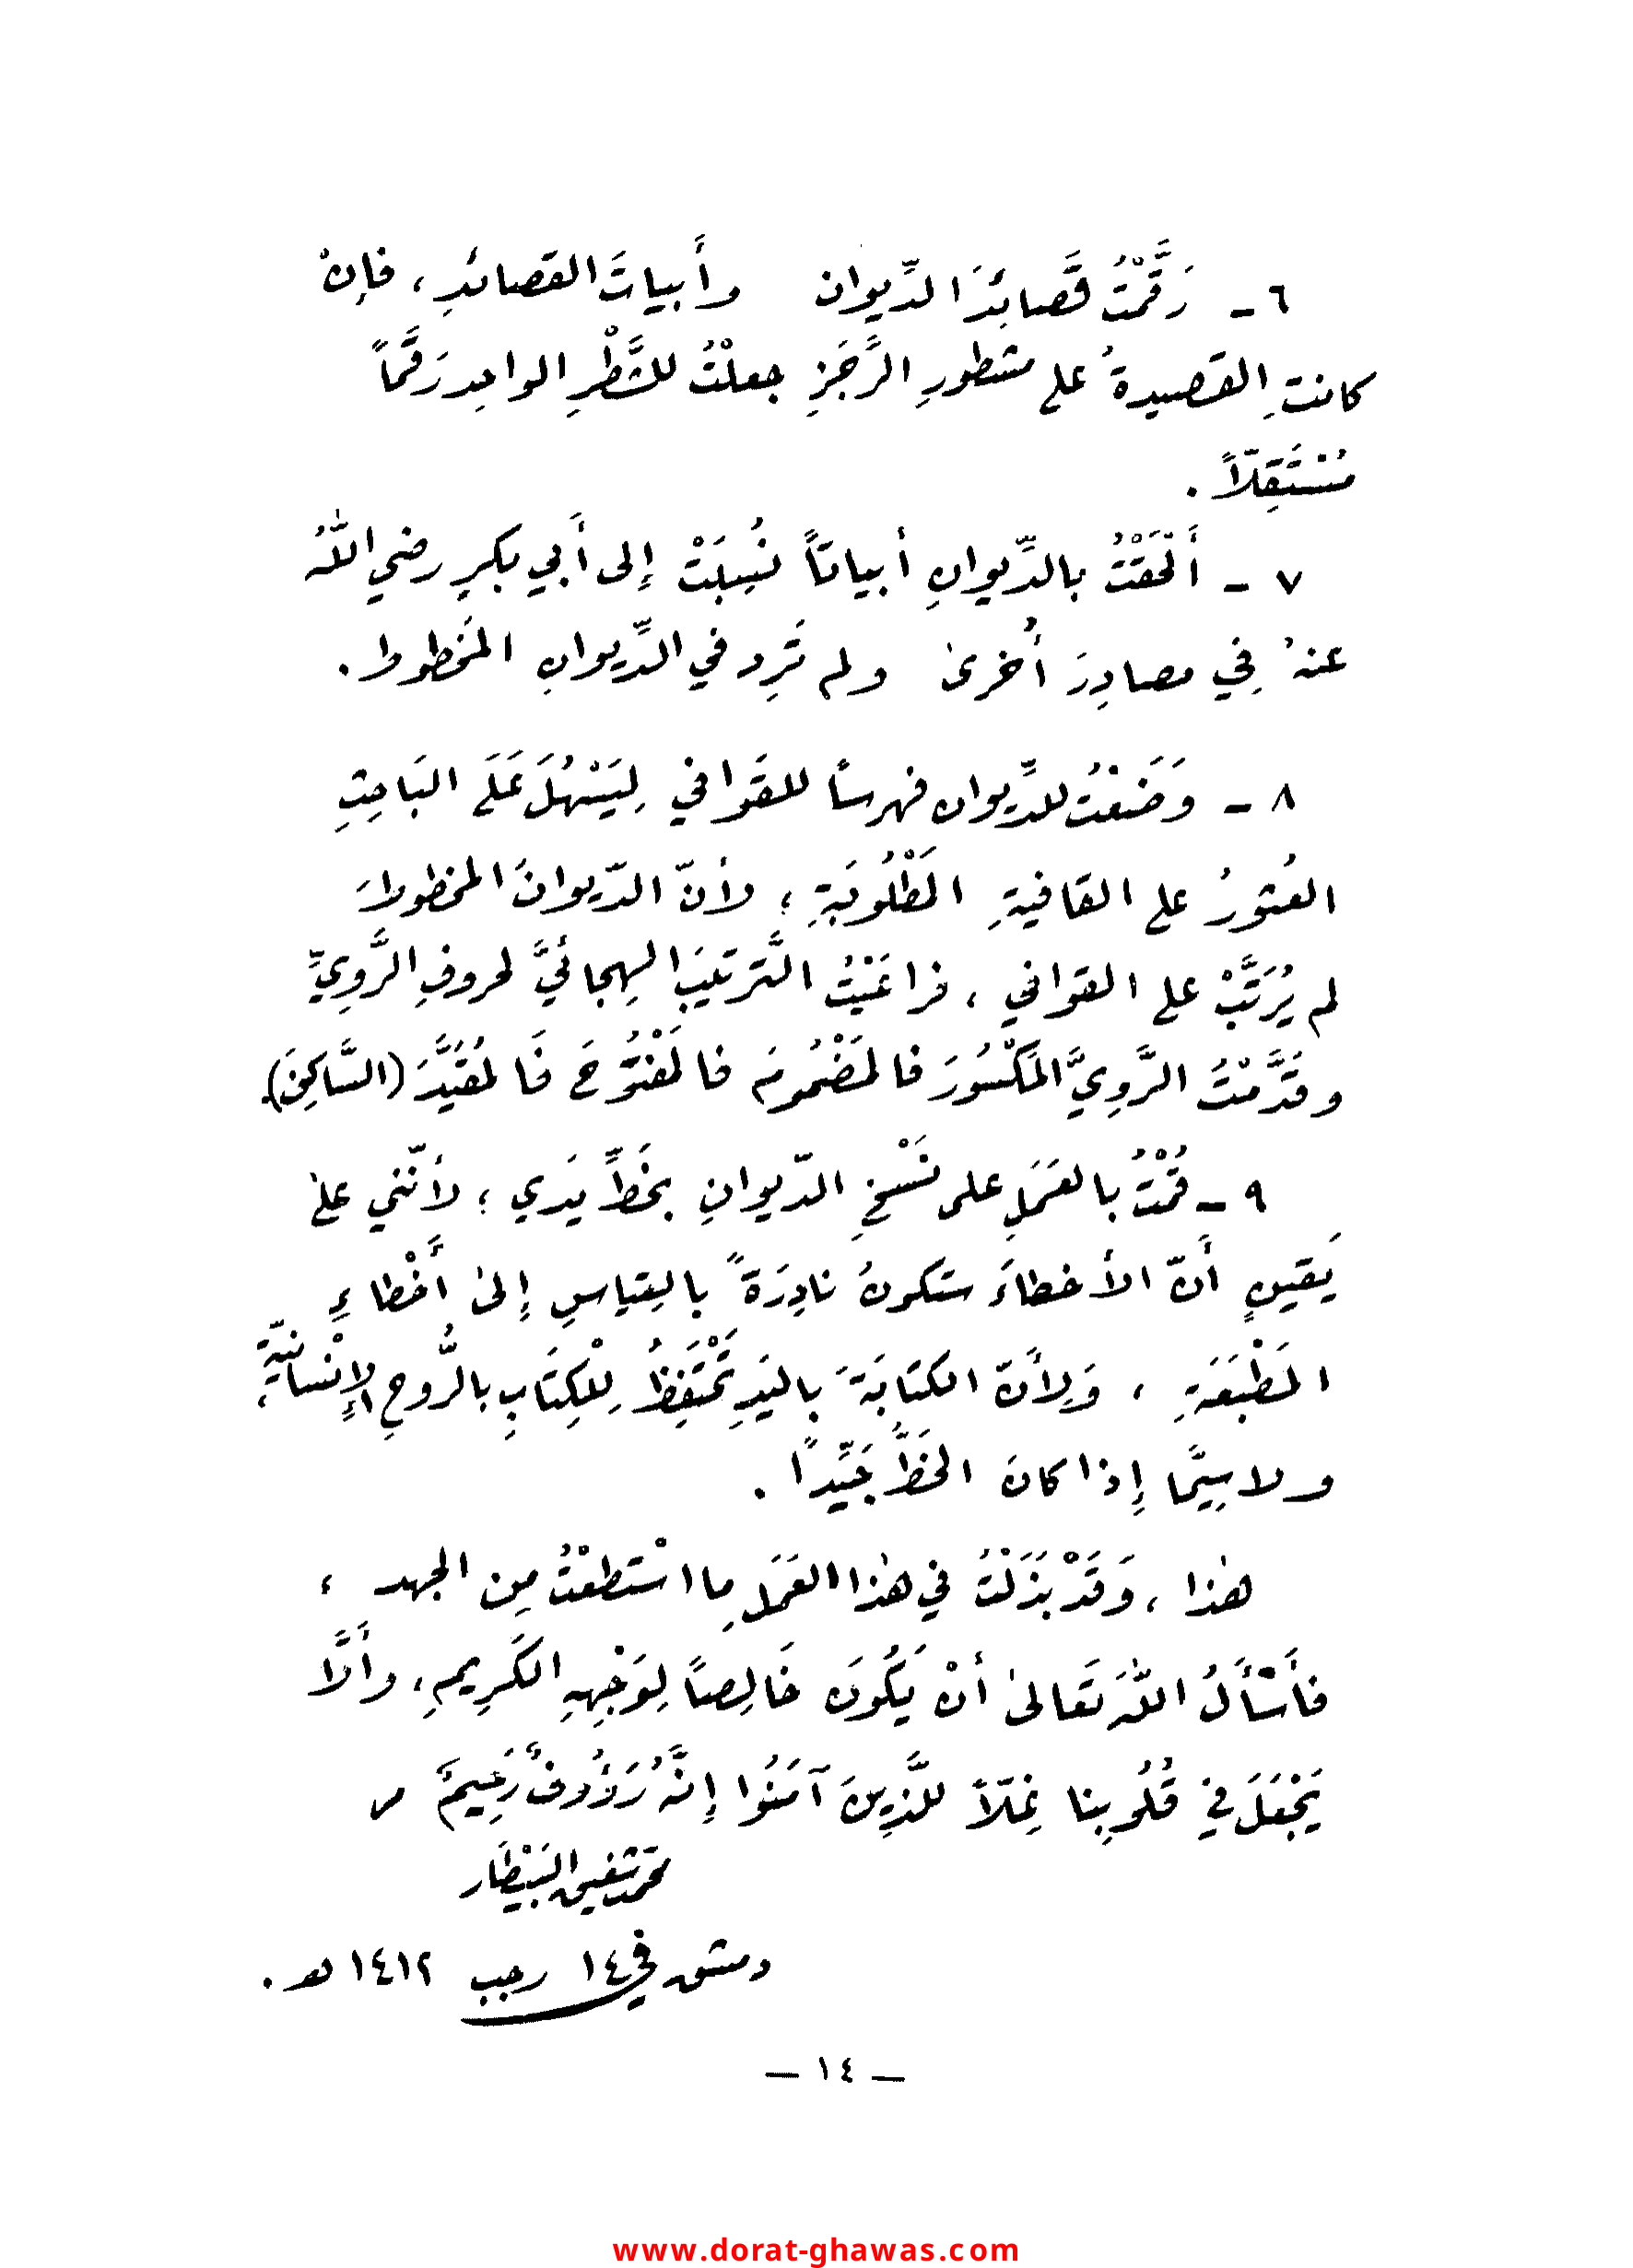 ٦ - رَقَّمْتُ قَصائِدَ الدِّيوان وأَبياتَ القصائدِ ، فإنْ
كانتِ القصيدةُ على مشطورِ الرَّجَزِ جعلْتُ للشَّطْرِ الواحِدِ رَقَمَاً
مُسْتَقِلّاً .
٧ - أَلْحَقْتُ بالدِّيوانِ أبياتاً نُسِبَتْ إلى أَبي بكرٍ رضي اللّٰهُ
عنهُ في مصادِرَ أُخرىٰ ولم تَرِد في الدِّيوانِ المَخطوط .
٨ - وَضَعْتُ للدِّيوان فهرساً للقَوافي لِيَسْهُلَ عَلَى البَاحِثِ
العُثورُ على القافيةِ المَطْلُوبَةِ ؛ لأنّ الدّيوانَ المخطوطَ
لم يُرَتَّبْ على القوافي ، فراعَيْتُ التَّرتيبَ الهِجائيَّ لحروفِ الرَّوِيِّ
وقَدَّمْتُ الرَّوِيَّ المَكْسُورَ فالمَضْمُومَ فالمَفْتُوحَ فَالمُقَيَّدَ (السَّاكِنَ).
٩ - قُمْتُ بالعَمَلِ على نَسْخِ الدّيوانِ بخَطِّ يَدي ؛ لأنّني علىٰ
يَقينٍ أَنّ الأخطاءَ ستكونُ نادِرَةً بالقِياسِ إلىٰ أَخْطاءِ
المَطْبَعَةِ ، وَلِأَنّ الكتَابَةَ باليَدِ تَحْتَفِظُ لِلْكِتَابِ بالرُّوحِ الإنْسانيّةِ،
ولا سِيَّما إذا كانَ الخَطُّ جَيِّداً .
هٰذا ، وَقَدْ بَذَلْتُ في هٰذا العَمَلِ ما اسْتطعْتُ مِن الجهد ،
فأَسْأَلُ اللّٰهَ تَعالىٰ أنْ يَكُونَ خَالِصاً لِوَجْهِهِ الكَرِيمِ ، وأَلَّا
يَجْعَلَ في قُلُوبِنا غِلّاً للَّذِينَ آمَنُوا إنَّهُ رَؤُوفٌ رَحِيمٌ
محمّد شفيق البَيْطَار
دمشق في ١٤ رجب ١٤١٢ هـ .
— ١٤ —
www.dorat-ghawas.com